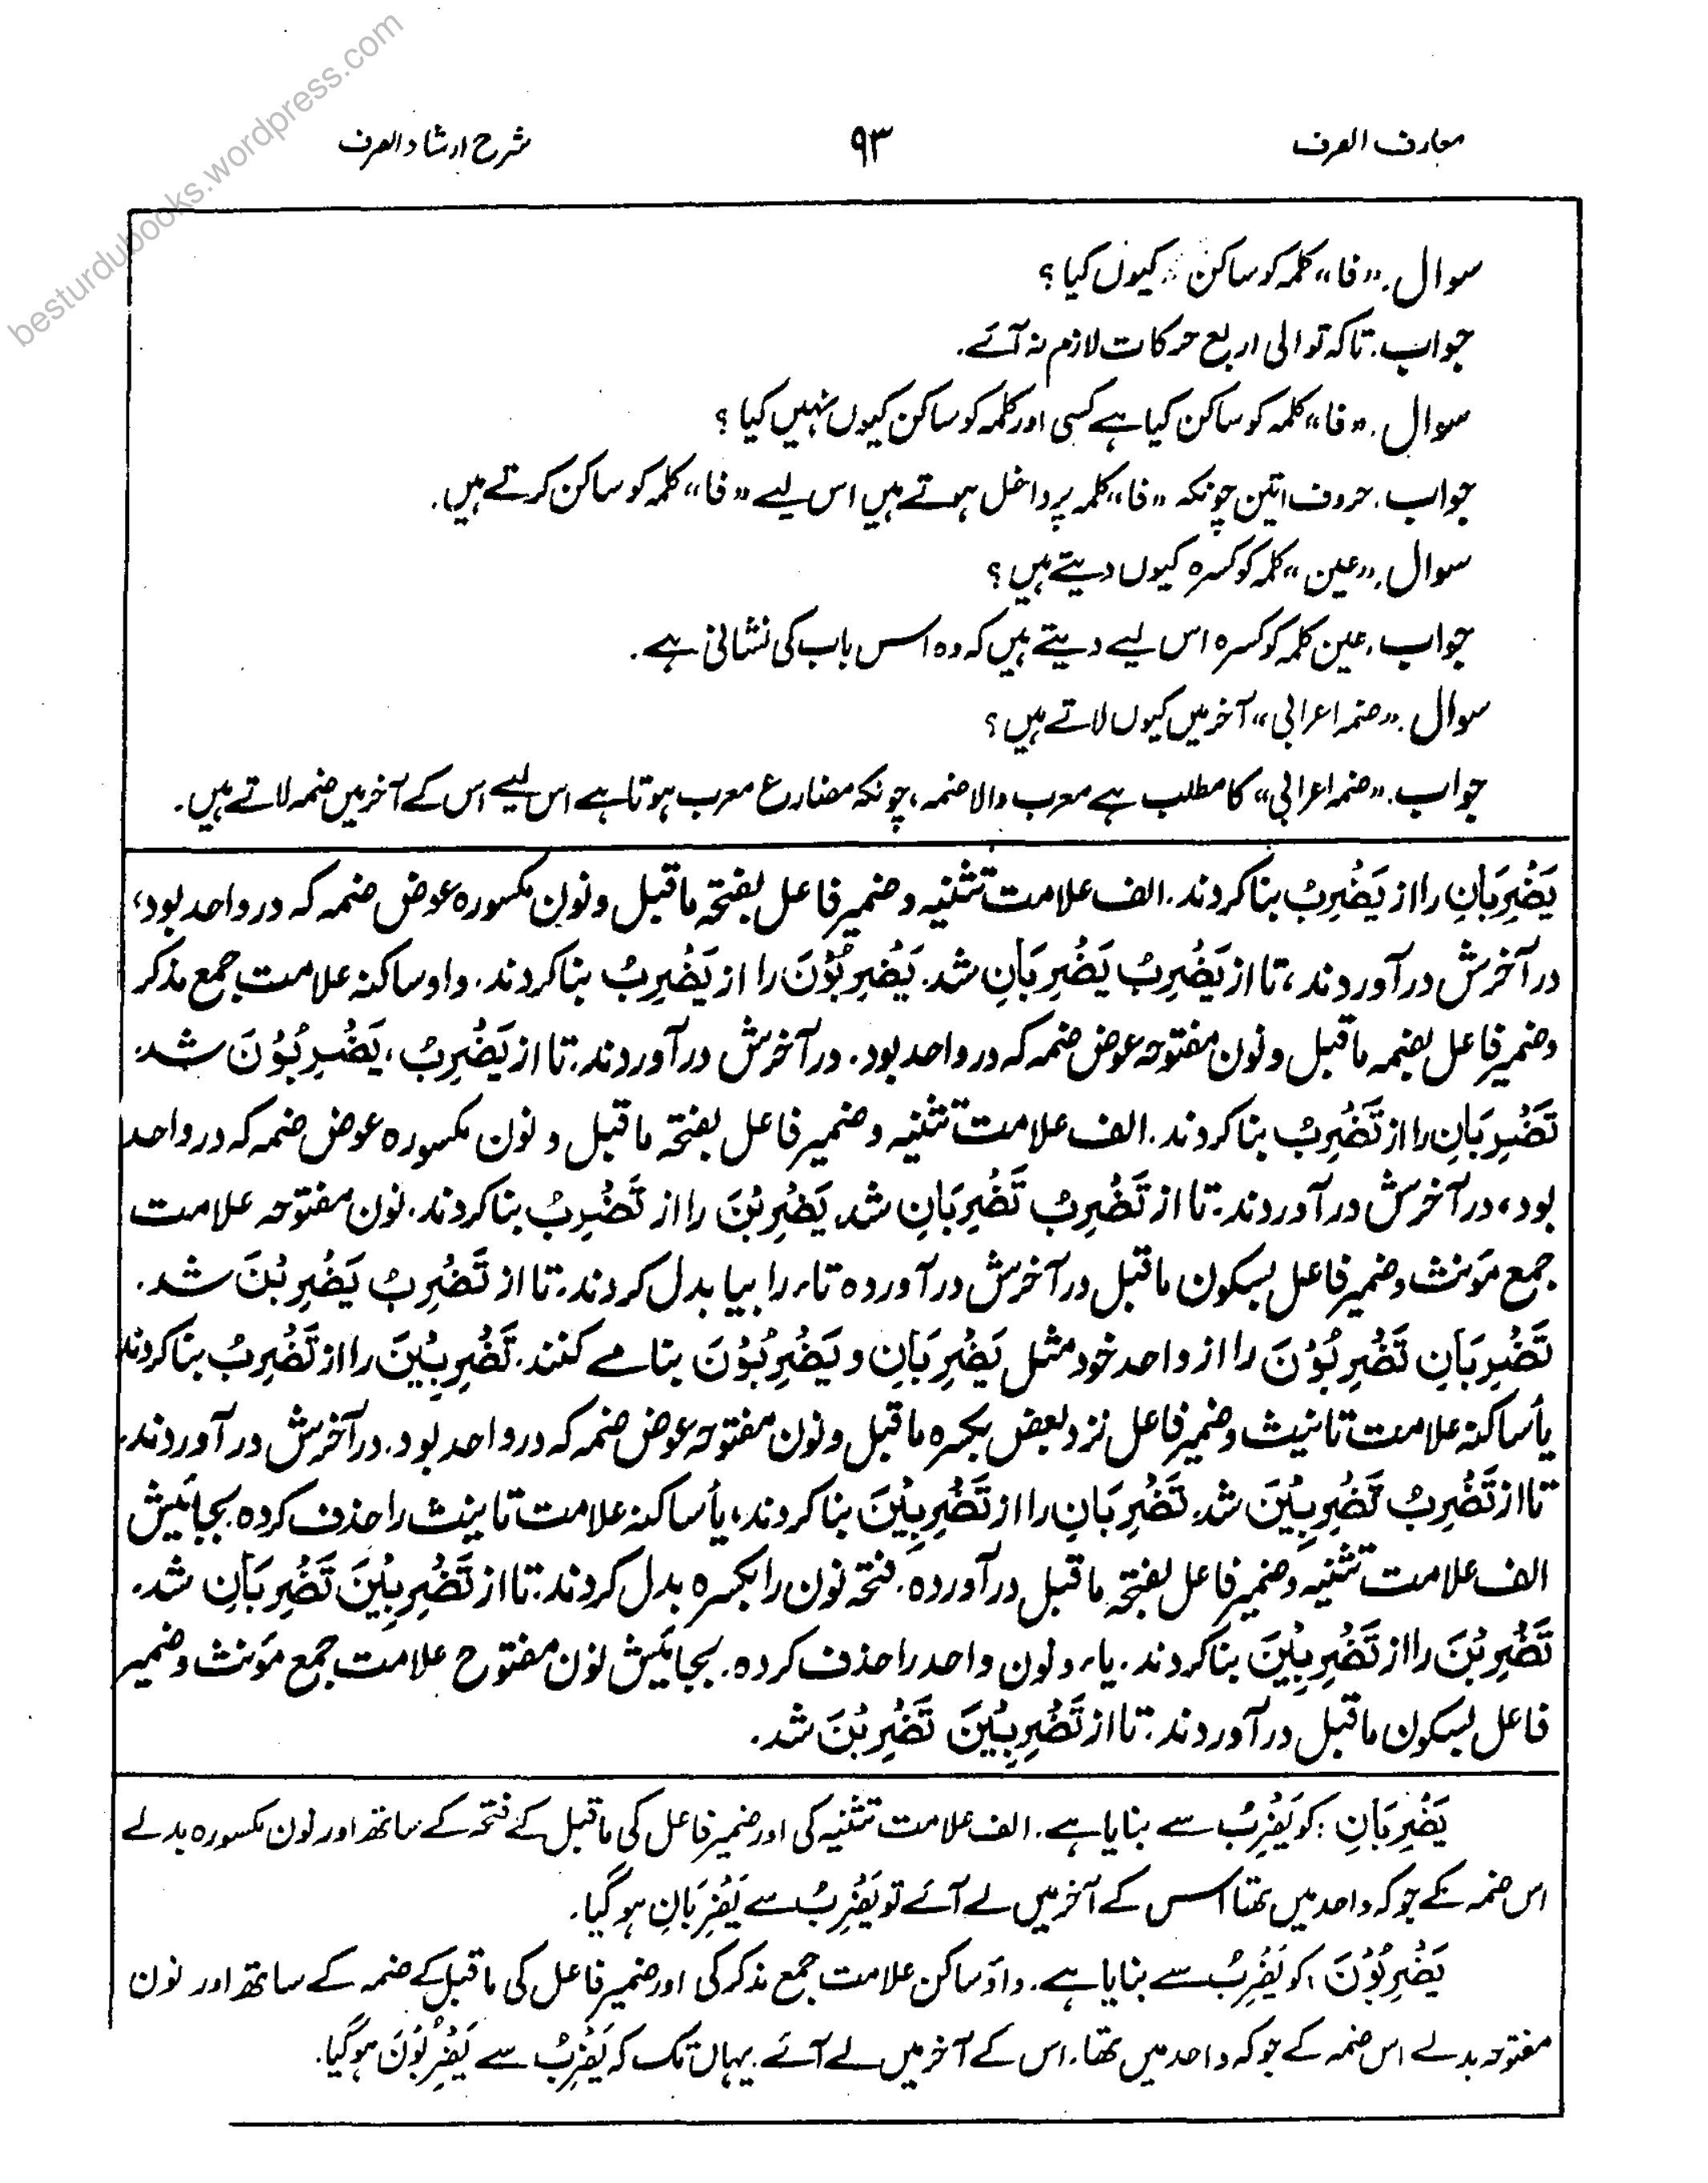 besturdubooks.wordpress.com
معارف الصرف ۹۳ شرح ارشاد الصرف
سوال. «فا» کلمہ کو ساکن کیوں کیا ؟
جواب. تاکہ توالی اربع حرکات لازم نہ آئے.
سوال. «فا» کلمہ کو ساکن کیا ہے کسی اور کلمہ کو ساکن کیوں نہیں کیا ؟
جواب. حروف اتین چونکہ «فا» کلمہ پر داخل ہوتے ہیں اس لیے «فا» کلمہ کو ساکن کرتے ہیں.
سوال. «عین» کلمہ کو کسرہ کیوں دیتے ہیں ؟
جواب. عین کلمہ کو کسرہ اس لیے دیتے ہیں کہ وہ اس باب کی نشانی ہے.
سوال. «ضمہ اعرابی» آخر میں کیوں لاتے ہیں ؟
جواب. «ضمہ اعرابی» کا مطلب ہے معرب والا ضمہ، چونکہ مضارع معرب ہوتا ہے اس لیے اس کے آخر میں ضمہ لاتے ہیں.
یَضْرِبَانِ را از یَضْرِبُ بنا کردند. الف علامت تثنیہ و ضمیر فاعل بفتحہ ماقبل و نون مکسورہ عوض ضمہ کہ در واحد بود،
در آخرش در آوردند، تا از یَضْرِبُ یَضْرِبَانِ شد. یَضْرِبُوْنَ را از یَضْرِبُ بنا کردند. واو ساکنہ علامت جمع مذکر
و ضمیر فاعل بضمہ ماقبل و نون مفتوحہ عوض ضمہ کہ در واحد بود. در آخرش در آوردند. تا از یَضْرِبُ، یَضْرِبُوْنَ شد.
تَضْرِبَانِ را از تَضْرِبُ بنا کردند. الف علامت تثنیہ و ضمیر فاعل بفتحہ ماقبل و نون مکسورہ عوض ضمہ کہ در واحد
بود، در آخرش در آوردند. تا از تَضْرِبُ تَضْرِبَانِ شد. یَضْرِبْنَ را از تَضْرِبُ بنا کردند. نون مفتوحہ علامت
جمع مؤنث و ضمیر فاعل بسکون ماقبل در آخرش در آوردہ تاء را بیا بدل کردند. تا از تَضْرِبُ یَضْرِبْنَ شد.
تَضْرِبَانِ تَضْرِبُوْنَ را از واحد خود مثل یَضْرِبَانِ و یَضْرِبُوْنَ بنا مے کنند. تَضْرِبِیْنَ را از تَضْرِبُ بنا کردند
یأ ساکنہ علامت تانیث و ضمیر فاعل نزد بعض بکسرہ ماقبل و نون مفتوحہ عوض ضمہ کہ در واحد بود. در آخرش در آوردند.
تا از تَضْرِبُ تَضْرِبِیْنَ شد. تَضْرِبَانِ را از تَضْرِبِیْنَ بنا کردند، یأ ساکنہ علامت تانیث را حذف کردہ. بجائیش
الف علامت تثنیہ و ضمیر فاعل بفتحہ ماقبل در آوردہ. فتحہ نون را بکسرہ بدل کردند. تا از تَضْرِبِیْنَ تَضْرِبَانِ شد.
تَضْرِبْنَ را از تَضْرِبِیْنَ بنا کردند. یاء و نون واحد را حذف کردہ. بجائیش نون مفتوح علامت جمع مؤنث و ضمیر
فاعل بسکون ماقبل در آوردند. تا از تَضْرِبِیْنَ تَضْرِبْنَ شد.
یَضْرِبَانِ : کو یَضْرِبُ سے بنایا ہے. الف علامت تثنیہ کی اور ضمیر فاعل کی ماقبل کے فتحہ کے ساتھ اور نون مکسورہ بدلے
اس ضمہ کے جو کہ واحد میں تھا اس کے آخر میں لے آئے تو یَضْرِبُ سے یَضْرِبَانِ ہو گیا.
یَضْرِبُوْنَ : کو یَضْرِبُ سے بنایا ہے. واؤ ساکن علامت جمع مذکر کی اور ضمیر فاعل کی ماقبل کے ضمہ کے ساتھ اور نون
مفتوحہ بدلے اس ضمہ کے جو کہ واحد میں تھا. اس کے آخر میں لے آئے. یہاں تک کہ یَضْرِبُ سے یَضْرِبُوْنَ ہو گیا.